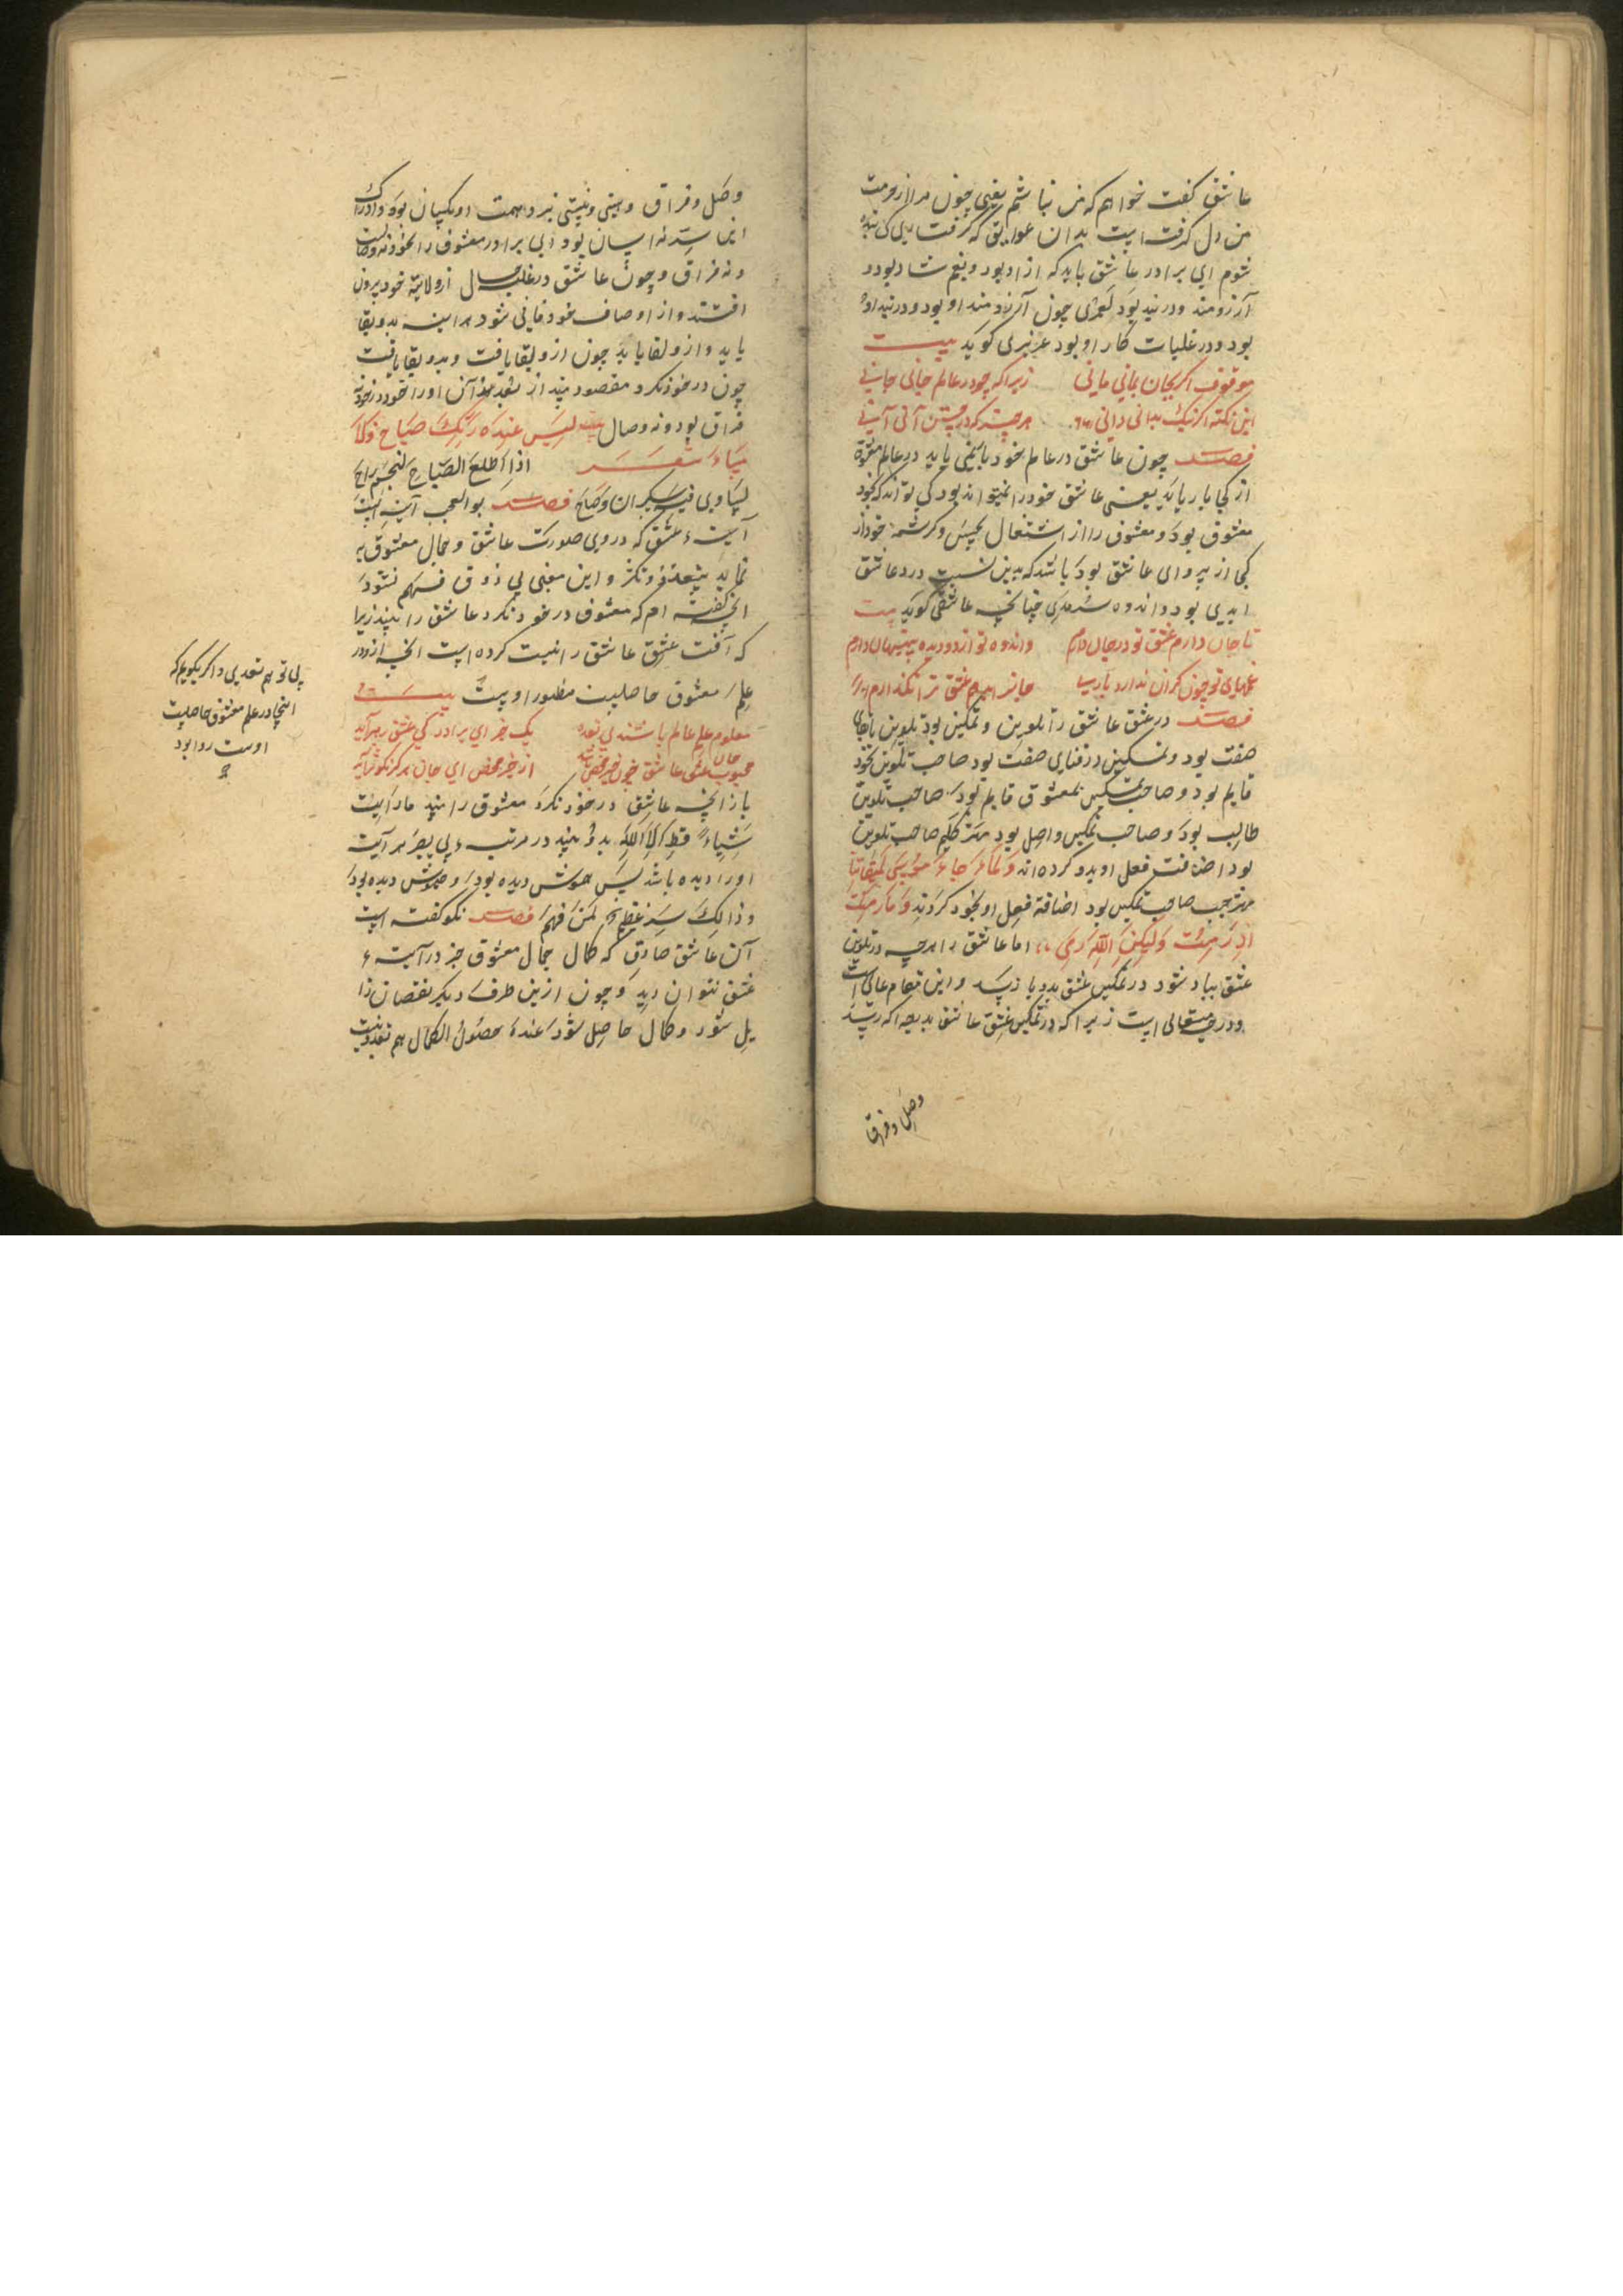 عاشق کفت خواهم که من نباشم یعنی چون مرا از حرمت
من دل کرفت است بدان عوایق که کرفت یکی کی بنده
شوم ای برادر عاشق باید که ازاد بود و بنعم شاد بود و
آرزومند و در بند بود لعمری چون آرزومند او بود و در بند او
بود و در غلبات کار او بود عزیزی کوید بیت
موقوف اکر بجان بمانی مانی زیرا که چو در عالم جانی جانی
این نکته اکر نیک بدانی دانی هر چیز که در جستن آنی آنی
فصل چون عاشق در عالم خود را نمی یابد در عالم معشوق
از کجا باز یابد یعنی عاشق خود را نمیتواند بود کی تواند که خود
معشوق بود و معشوق را از اشتغال بحسن و کرشمه خود از
کجا از پروای عاشق بود باشد که بدین نسبت درد عاشق
ابدی بود و اندوه سرمدی چنانچه عاشقی کوید بیت
تا جان دارم عشق تو در جان دارم واندوه تو از دو دیده پنهان دارم
غمهای تو چون کران ندارد یارب
فصل در عشق عاشق را تلوین و تمکین بود تلوین بقای
صفت بود و تمکین در فنای صفت بود صاحب تلوین بخود
قایم بود و صاحب تمکین بمعشوق قایم بود صاحب تلوین
طالب بود و صاحب تمکین واصل بود مهتر کلیم صاحب تلوین
بود اضافت فعل او بدو کرده اند وَلَمّا جاءَ مُوسی لِمِیقاتِنا
مهتر حبیب صاحب تمکین بود اضافة فعل او بخود کردند وَما رَمَیتَ
اِذ رَمَیتَ وَلکِنَّ اللهَ رَمی اما عاشق را هرچه در تلوین
عشق بباد شود در تمکین عشق بدو باز رسد و این مقام عالی است
و درجه متعالی است زیرا که در تمکین عشق عاشق بدرجه‌ا که رسد
وصل و فراق
وصل و فراق و هستی و نیستی نبرد و همت او یکسان بود و ادراک
این سِر نه اسان بود ای برادر معشوق را بخود نه وصالست
و نه فراق و چون عاشق در غلبه حال از ولایة خود بیرون
افتد و از اوصاف خود فانی شود هراینه بدو بقا
یابد و از و لقا یابد چون از و لقا یافت و بدو بقا یافت
چون در خود نکرد مقصود بیند از بعد هذا آن او را بخود در خود نه
فراق بود و نه وصال لیس عند ربک صباح ولا
مساء شعر اذا طلع الصباح لنجم راح
تساوی فیه سکران و صاح فصل بوالعجب آینه ایست
آینهٔ عشق که در وی صورت عاشق و جمال معشوق
نماید بتعدد و تکثر و این معنی بی ذوق فهم نشود
انچ کفته ام که معشوق در خود نکرد عاشق را نبیند زیرا
که آفت عشق عاشق را نیست کرده است انچه از و در
علم معشوق حاصلیت منظور او بیست بیت
معلوم علم عالم باشد نی نعده یک خبر ای برادر کی عشق رهبر آید
محبوب جان عاشق چون خیر محض باشد از خیر محض ای جان هرکز نکو شر آید
باز انچه عاشق در خود نکرد معشوق را بیند ما رایت
شیئا قط الا الله بدو بیند در مرتبهٔ بی یبصر هر آینه
او را دیده باشد پس همونش دیده بود و همونش دیده بود
و ذالک سِر عظیم لمن فهم فصل نکو کفته است
آن عاشق صادق که کمال جمال معشوق جز در آینهٔ
عشق نتوان دید و چون ازین طرف دیکر نقصان زا
یل شود و کمال حاصل شود عند حصول الکمال هم تعدد نیست
پی تو هم تعددی و اکر بکویم که
انچا در علم معشوق حاصلیت
اوست روا بود